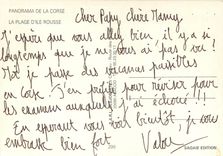 PANORAMA DE LA CORSE
LA PLAGE D'ILE ROUSSE
Cher Papy, Chère Mamy,
J'espère que vous allez bien, il y a si
longtemps que je ne vous ai pas vu !
Moi je passe des vacances paisibles
en Corse. J'en profite pour réviser pour
les examens auxquels j'ai échoué !!!
En espérant vous voir bientôt, je vous
embrasse bien fort
200
EDITION